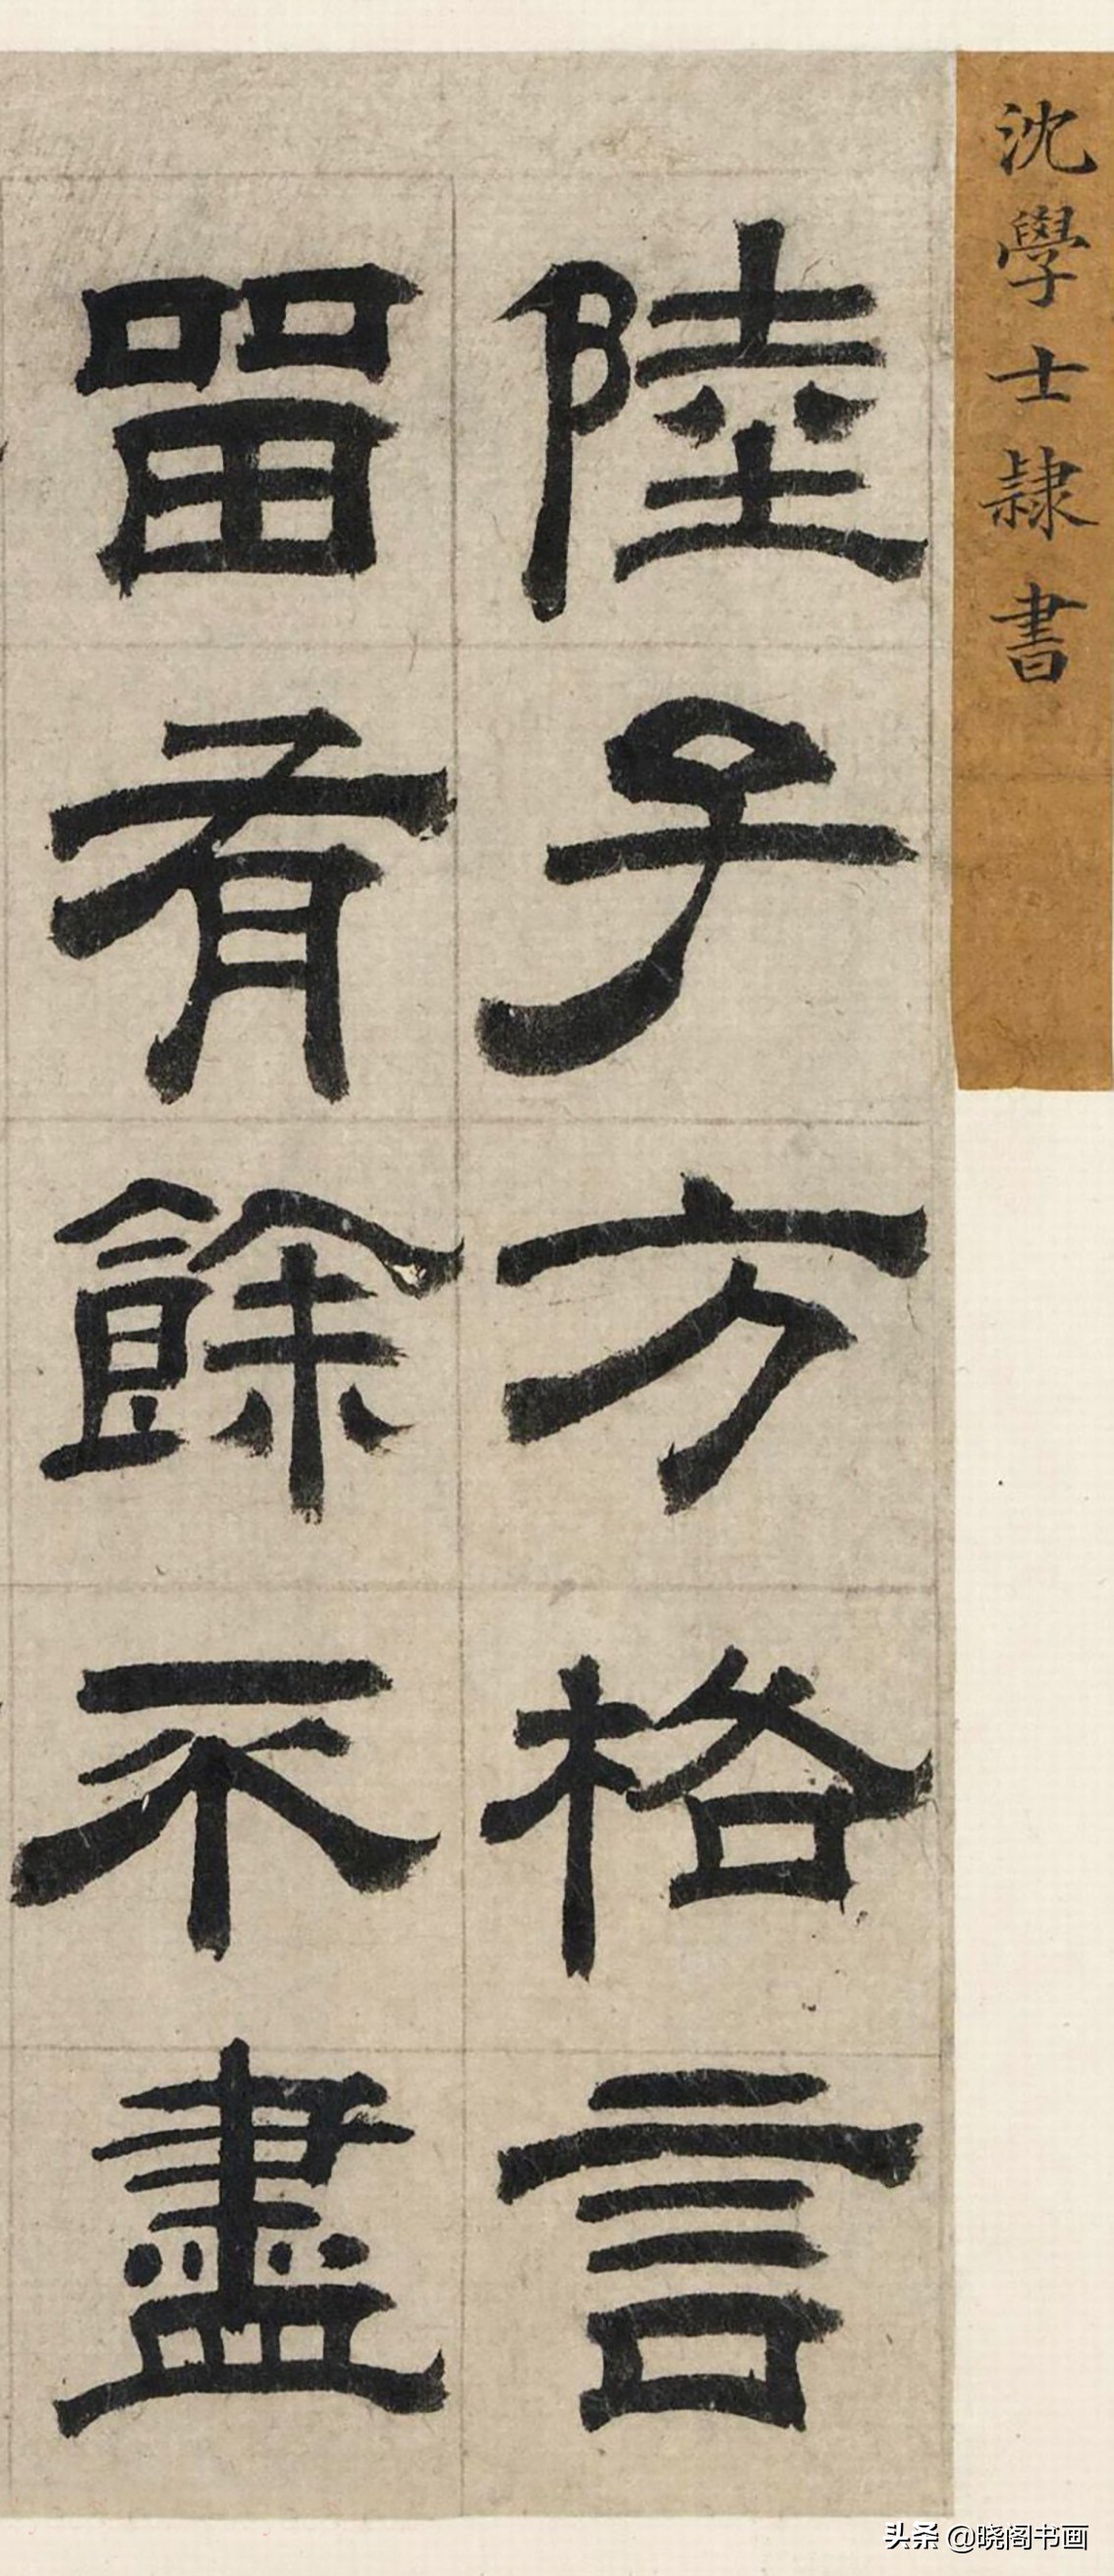 沈學士隸書
陸子方格言
畱有餘不盡
头条 @晓阁书画